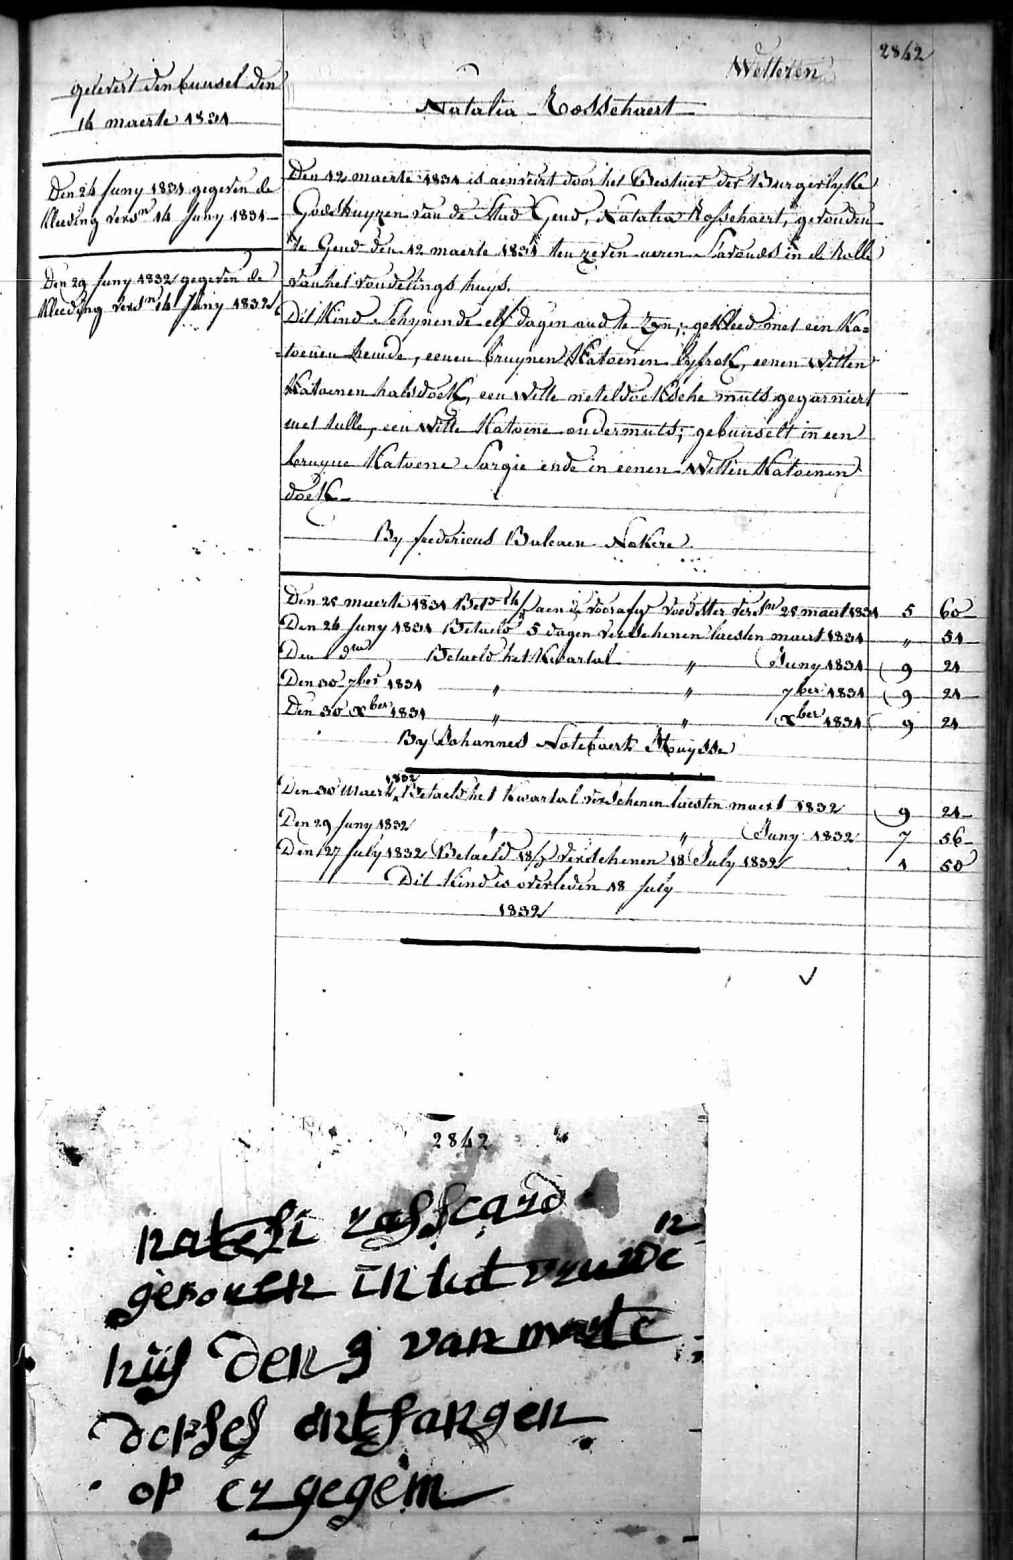 2842
Wetteren
gelevert den bunsel den
16 maerte 1831
Natalia Rosschaert
Den 26 Juny 1831 gegeven de
kleeding versn 16 Juny 1831
Den 29 Juny 1832 gegeven de
kleeding versn 16 Juny 1832
Den 12 maerte 1831 is aenveirt door het Bestuer der Burgerlyke
Godshuyzen van de Stad Gend, Natalia Rosschaert, gevonden
te Gend den 12 maerte 1831 ten zeven ueren s'avonds in de rolle
van het vondelings huys.
Dit Kind schynende elf dagen oud te zyn, gekleed met een Ka=
=toenen hemde, eenen bruynen Katoenen lyfrok, eenen Witten
Katoenen halsdoek, een Witte neteldoeksche muts gegarniert
met tulle, een Witte Katoene ondermuts; gebunselt in een
bruyne Katoene Sargie ende in eenen Witten Katoenen
doek
By fredericus Bulcaen Nokere
Den 28 maerte 1831 Bet aen de voedster versn 28 maert 1831 5 60
Den 26 Juny 1831 Betaeld 5 dagen verschenen laesten maert 1831 " 51
Den dto Betaeld het Kwartal " Juny 1831 9 21
Den 30 7ber 1831 " " 7ber 1831 9 21
Den 30 xber 1831 " " xber 1831 9 21
By Johannes Notebaert Huysse
Den 30 Maert 1832 Betaeld het Kwartal verschenen laesten maert 1832 9 21
Den 29 Juny 1832 " " Juny 1832 7 56
Den 27 July 1832 Betaeld 18/ verschenen 18 July 1832 1 50
Dit Kind is overleden 18 July
1832
2842
rosscard
gevonen in het
hijs den 9 van marte
ontfangen
op ergegem